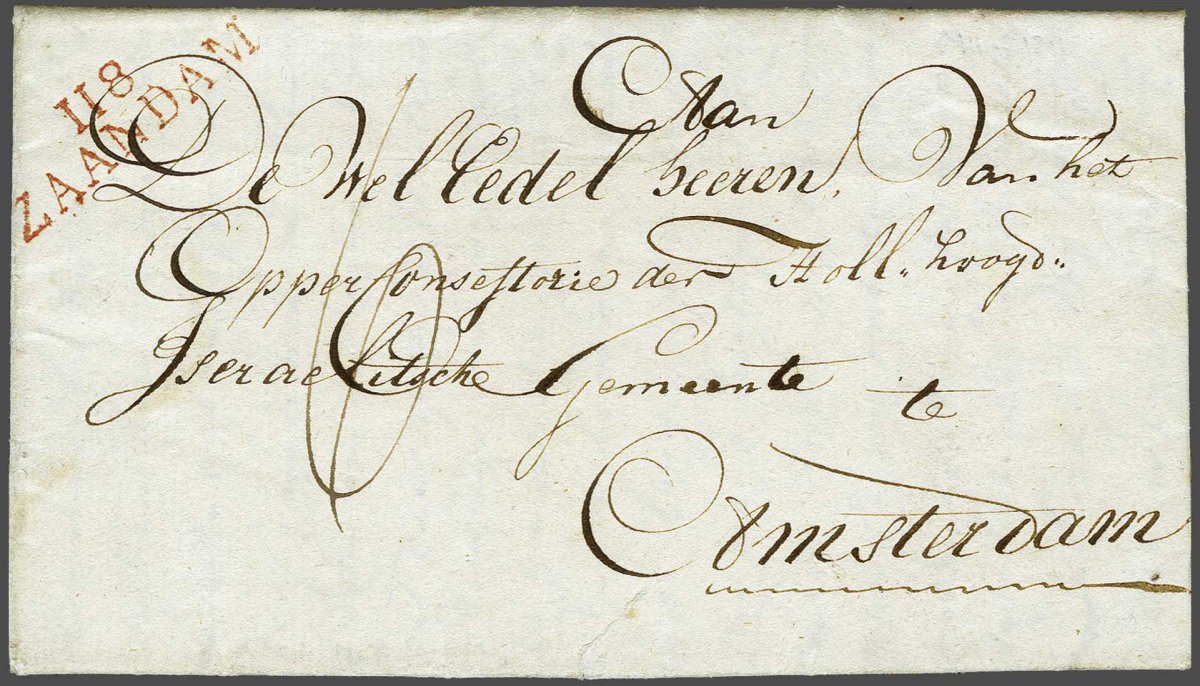 118
ZAANDAM
Aan
De Wel Eedel heeren, Van het
Opper Consestorie der Holl„ hoogd„
Iseraelitsche Gemeente te
Amsterdam